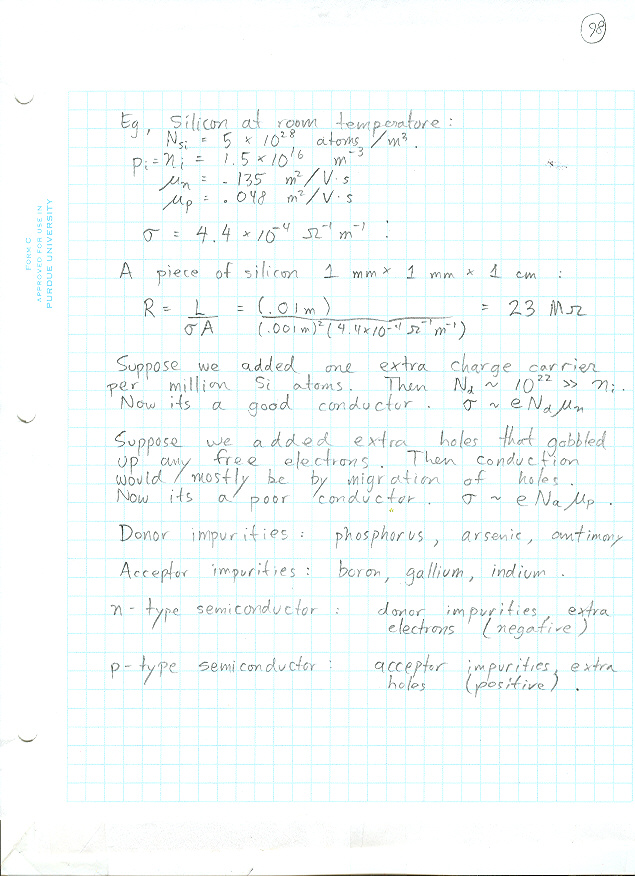 98
FORM C
APPROVED FOR USE IN
PURDUE UNIVERSITY
Eg, Silicon at room temperature:
N_Si = 5 × 10^28 atoms/m^3.
p_i = n_i = 1.5 × 10^16 m^-3
μ_n = .135 m^2/V·s
μ_p = .048 m^2/V·s
σ = 4.4 × 10^-4 Ω^-1 m^-1 :
A piece of silicon 1 mm × 1 mm × 1 cm :
R = L/σA = (.01m)/((.001m)^2(4.4×10^-4 Ω^-1 m^-1)) = 23 MΩ
Suppose we added one extra charge carrier
per million Si atoms. Then N_d ~ 10^22 >> n_i.
Now its a good conductor. σ ~ e N_d μ_n
Suppose we added extra holes that gobbled
up any free electrons. Then conduction
would mostly be by migration of holes.
Now its a poor conductor. σ ~ e N_a μ_p.
Donor impurities: phosphorus, arsenic, antimony
Acceptor impurities: boron, gallium, indium.
n-type semiconductor: donor impurities, extra
electrons (negative)
p-type semiconductor: acceptor impurities, extra
holes (positive).